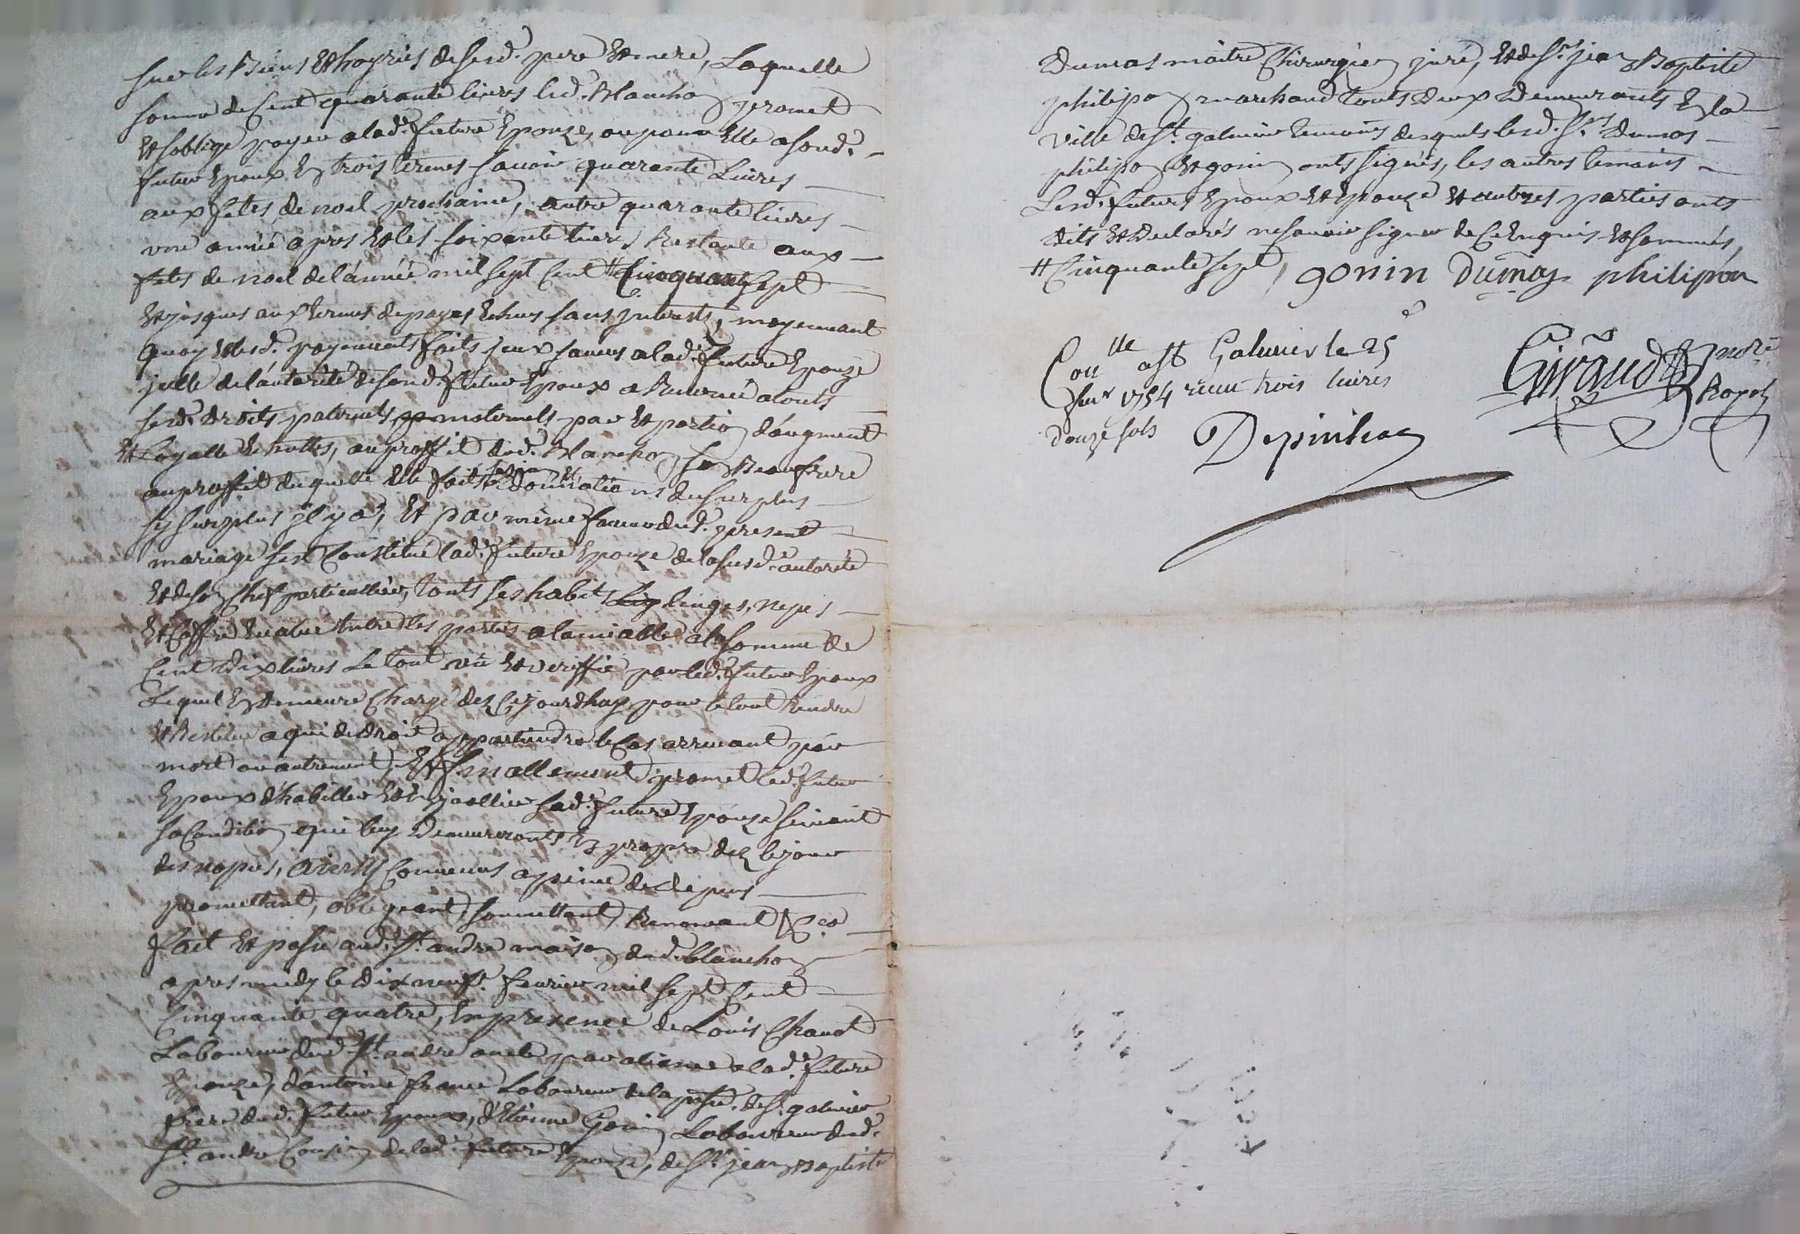 sur les Biens & hoyries de sesd. pere & mere, Laquelle
somme de Cent quarante livres led. Blanchon promet
& soblige payer a lad. future Epouze, ou pour Elle a sond.
futur Epoux En trois termes savoir quarante Livres
aux fetes de noel prochaines, autre quarante livres
une année apres & les soixante livres Restante aux
fetes de noel de l'année mil sept Cent # Cinquante sept
& jusques aux termes de payes Echus sans jnterets, moyennant
quoy & lesd. payements faits jceux sauves a lad. future Epouze
jcelle de l'autorité de sond. futur Epoux a Renoncé a touts
sesd. droits paternels maternels par & portion d'augment
& Loyalle Echuttes, au proffit dud. Blanchon son Beaufrere
au proffit duquelle Elle fait cession & donnations du surplus
sy surplus jl y a, & par même faveur dud. present
mariage sest Constitué lad. future Epouze de la susd. autorité
& de son Chef particullier, touts ses habits linges, nipes
& Coffre Evalué Entre les parties a lamiable a la somme de
Cent dix livres le tout vû & veriffié par led. futur Epoux
Lequel En demeure Chargé dez Cejourdhuy pour le tout Rendre
& Restituer a qui de droit appartiendra le Cas arrivant par
mort ou autrement, & finallement promet led. futur
Epoux d'habiller & Enjoallier sad. future Epouze suivant
sa Condition qui luy demeureront En propre dez le jour
des nopces, ainsy Convenus a peine de depens
promettant, obligeant, soumettant, Renoncant &ca
fait & passé aud. St. andré maison dud. blanchon
apres midy le dix neuf. fevrier mil sept Cent
Cinquante quatre, En presence de Louis Chavot
Laboureur dud. St. andré oncle par aliance a lad. future
Epouze, d'antoine france Laboureur de la parse. de St. galmier
frere dud. futur Epoux, d'Etienne Gonin Laboureur dud.
St. andré Cousin de lad. future Epouze, de Sr. jean Baptiste
Dumas maitre Chirurgien juré, & de Sr. jean Baptiste
philipon marchand touts deux demeurants En la
ville de St. galmier temoins desquels lesd. Srs. Dumas
philipon & gonin onts signés, les autres temoins
Lesd. futurs Epoux & Epouze & autres parties onts
dits & declarés ne savoir signer de Ce Enquis & sommés,
# Cinquante sept, gonin Dumas philipon
Conlle a St Galmier le 25e
fevr 1754 recu trois livres
douze sols
Depinhac
Giraud nore
Royal